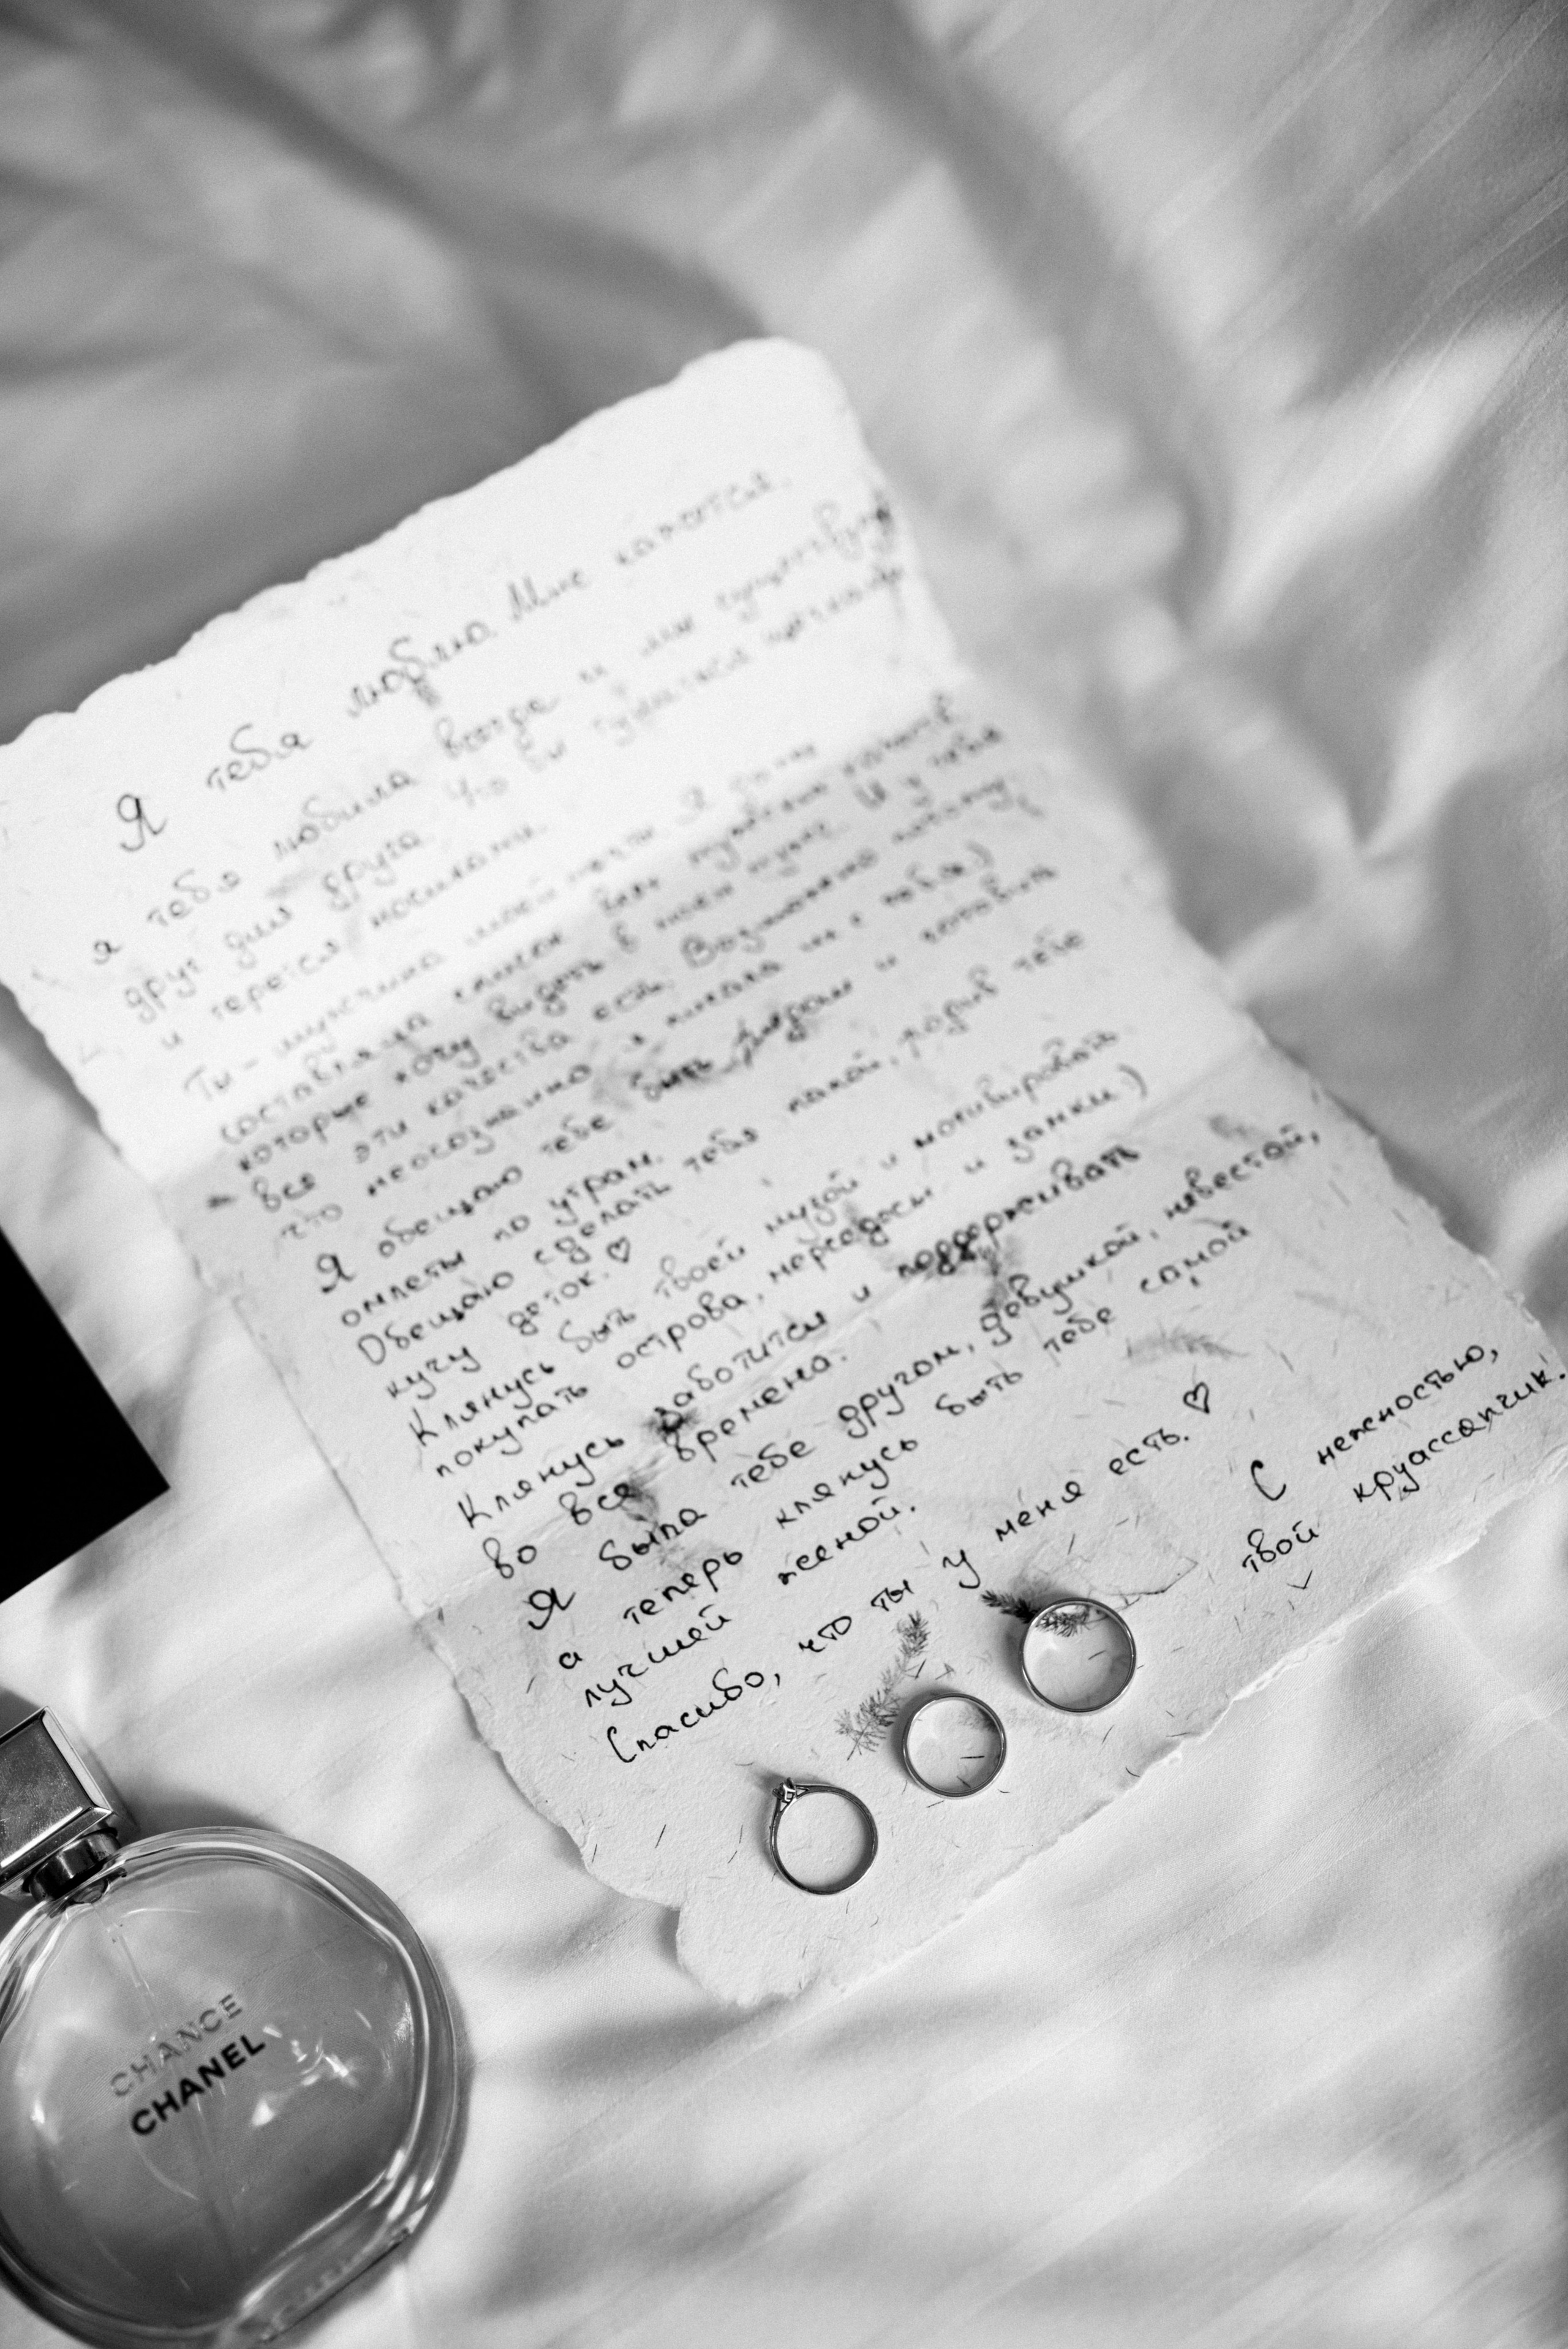 Я тебя люблю. Мне кажется,
я тебя любила всегда и мы существуем
друг для друга. Что бы
и терется носиками.
Ты - мужчина моей мечты. Я
составляла список
которые хочу видеть в моем муже. И у тебя
все эти качества есть. Возможно потому,
что неосознанно я писала их с тебя:)
Я обещаю тебе быть рядом и готовить
омлеты по утрам.
Обещаю сделать тебя папой, родив тебе
кучу деток. ♡
Клянусь быть твоей музой и мотивировать
покупать острова, мерседесы и замки:)
Клянусь заботится и поддерживать
во все времена.
Я была тебе другом, девушкой, невестой,
а теперь клянусь быть тебе самой
лучшей женой.
Спасибо, что ты у меня есть. ♡
С нежностью,
твой круассанчик.
CHANCE
CHANEL